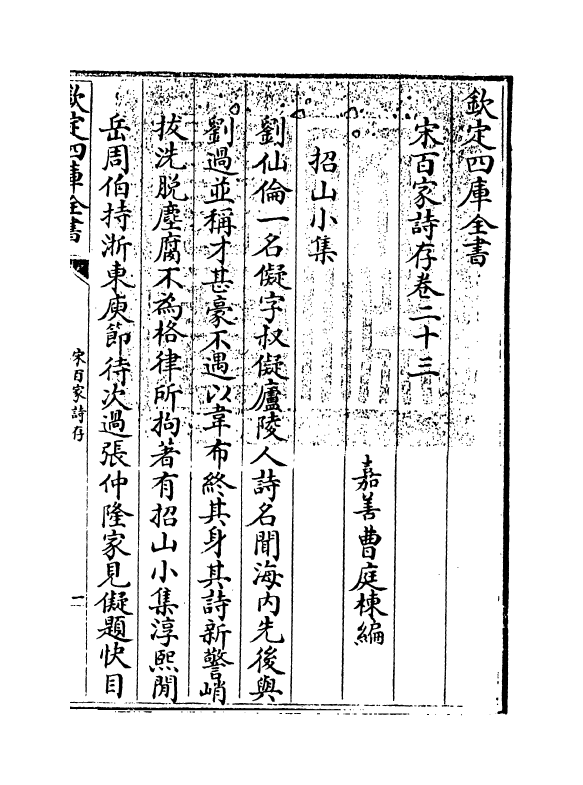 欽定四庫全書
宋百家詩存卷二十三
嘉善曹庭棟編
招山小集
劉仙倫一名儗字叔儗廬陵人詩名聞海内先後與
劉過並稱才甚豪不遇以韋布終其身其詩新警峭
拔洗脱塵腐不為格律所拘著有招山小集淳熙間
岳周伯持浙東庾節待次過張仲隆家見儗題快目
欽定四庫全書
宋百家詩存
一